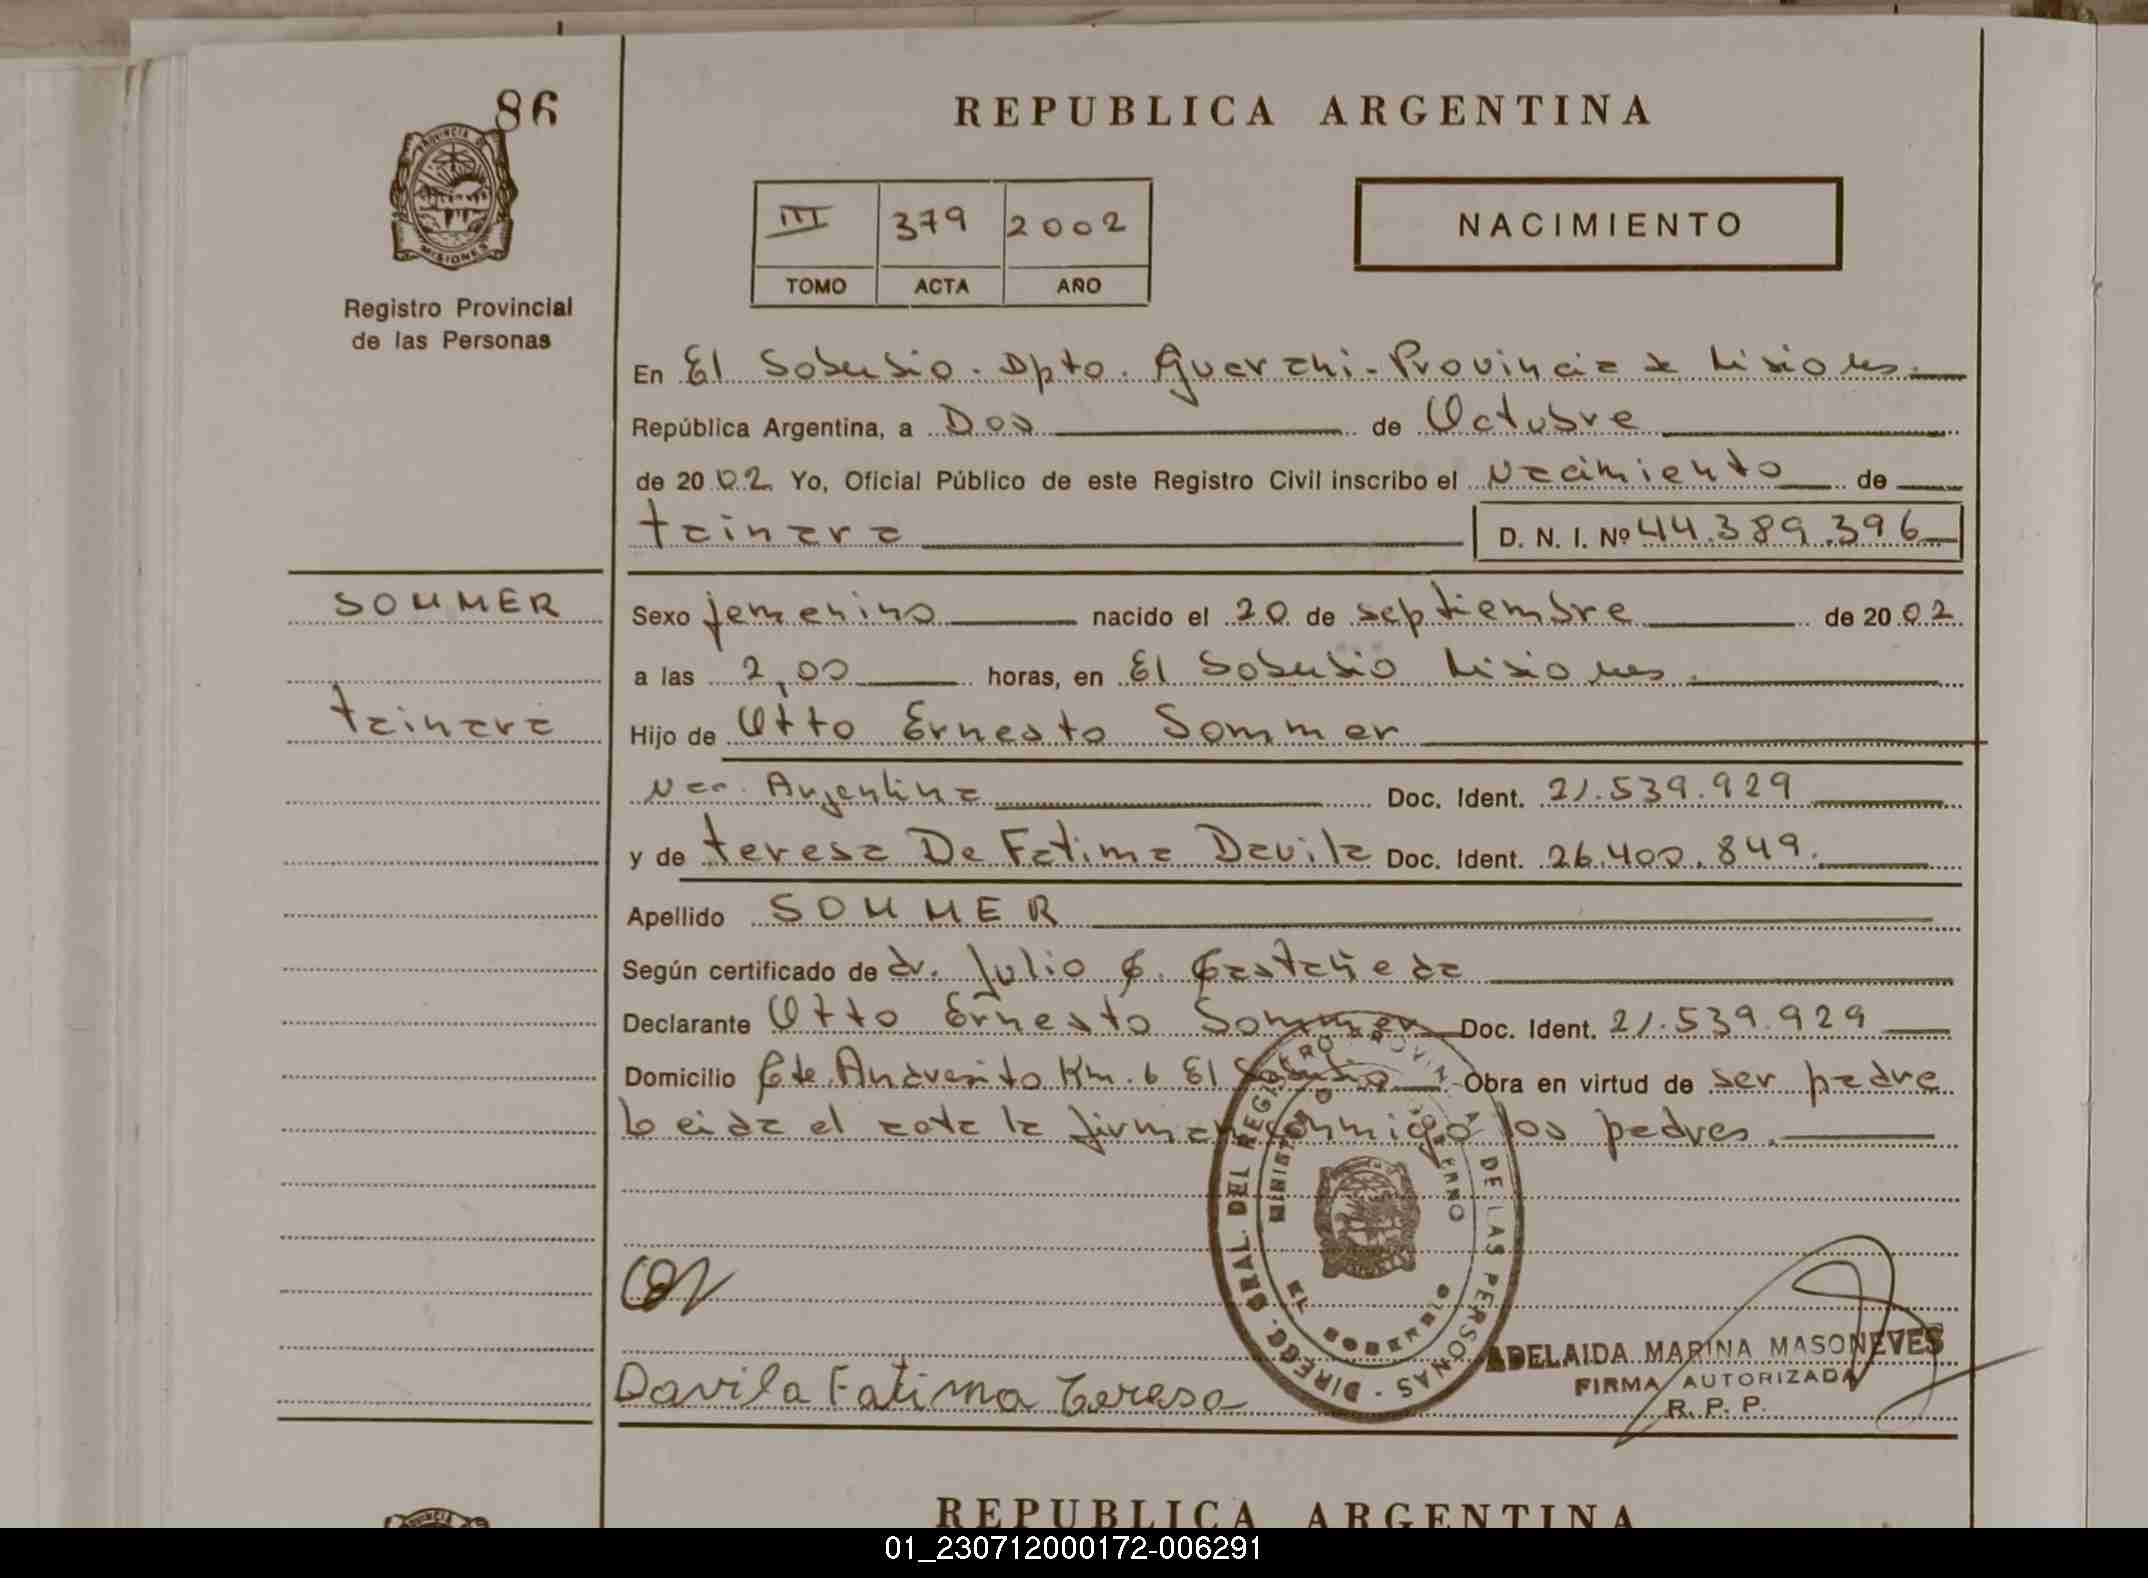 86
REPUBLICA ARGENTINA
PROVINCIA DE
MISIONES
Registro Provincial
de las Personas
III 379 2002
TOMO ACTA AÑO
NACIMIENTO
En El Soberbio - Dpto. Guarani - Provincia de Misiones.
República Argentina, a Dos de Octubre
de 2002 Yo, Oficial Público de este Registro Civil inscribo el Nacimiento de
tainara D. N. I. Nº 44.389.396
SOMMER
Sexo femenino nacido el 20 de septiembre de 2002
a las 2,00 horas, en El Soberbio Misiones.
tainara
Hijo de Otto Ernesto Sommer
Nac. Argentina Doc. Ident. 21.539.929
y de teresa De Fatima Davila Doc. Ident. 26.400.849.
Apellido SOMMER
Según certificado de dr. Julio C. Castañeda
Declarante Otto Ernesto Sommer Doc. Ident. 21.539.929
Domicilio Cte. Andresito Km. 6 El Soberbio Obra en virtud de ser padre
Leida el acta la firman conmigo los padres.
DIRECC. GRAL. DEL REGISTRO PROVINCIAL DE LAS PERSONAS
MINISTERIO DE GOBIERNO
EL SOBERBIO
ADELAIDA MARINA MASONEVES
FIRMA AUTORIZADA
R. P. P.
Davila Fatima Teresa
REPUBLICA ARGENTINA
01_230712000172-006291